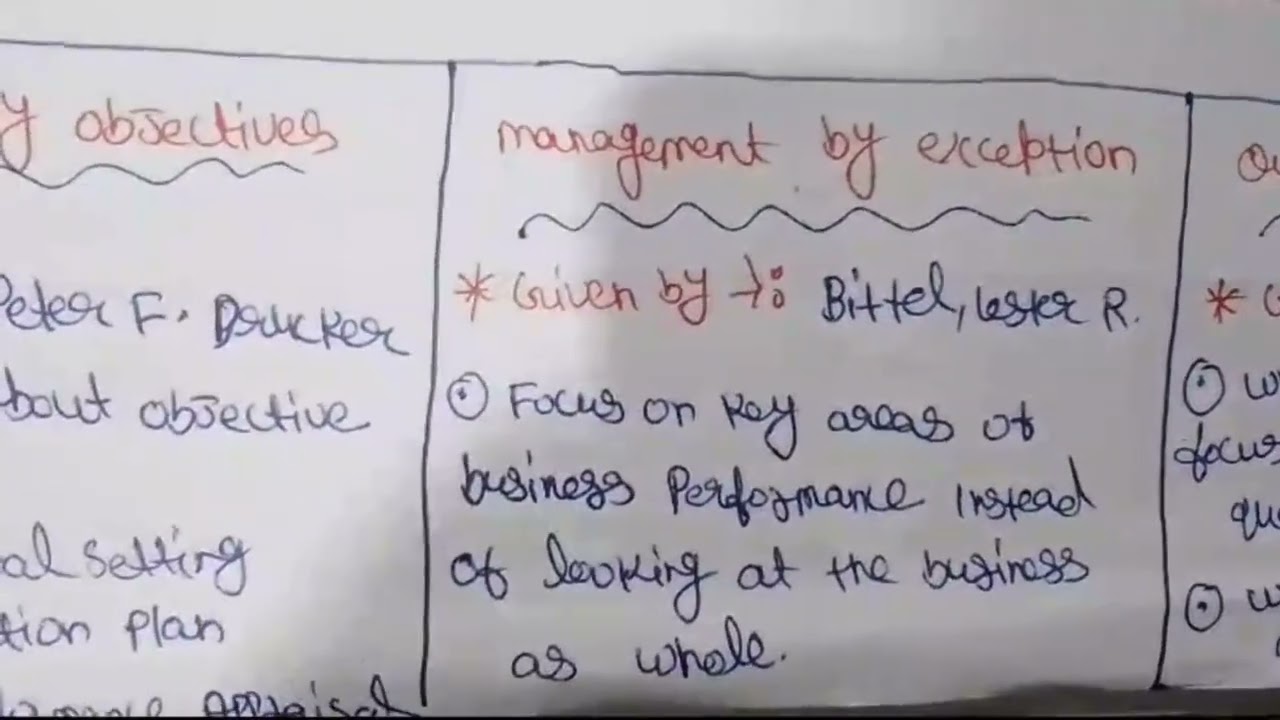 y objectives
Peter F. Drucker
bout objective
al setting
tion plan
Appraisal
management by exception
* Given by →: Bittel, Lester R.
⊙ Focus on Key areas of
business Performance Instead
of looking at the business
as whole.
* G
⊙ w
focus
qu
⊙ w